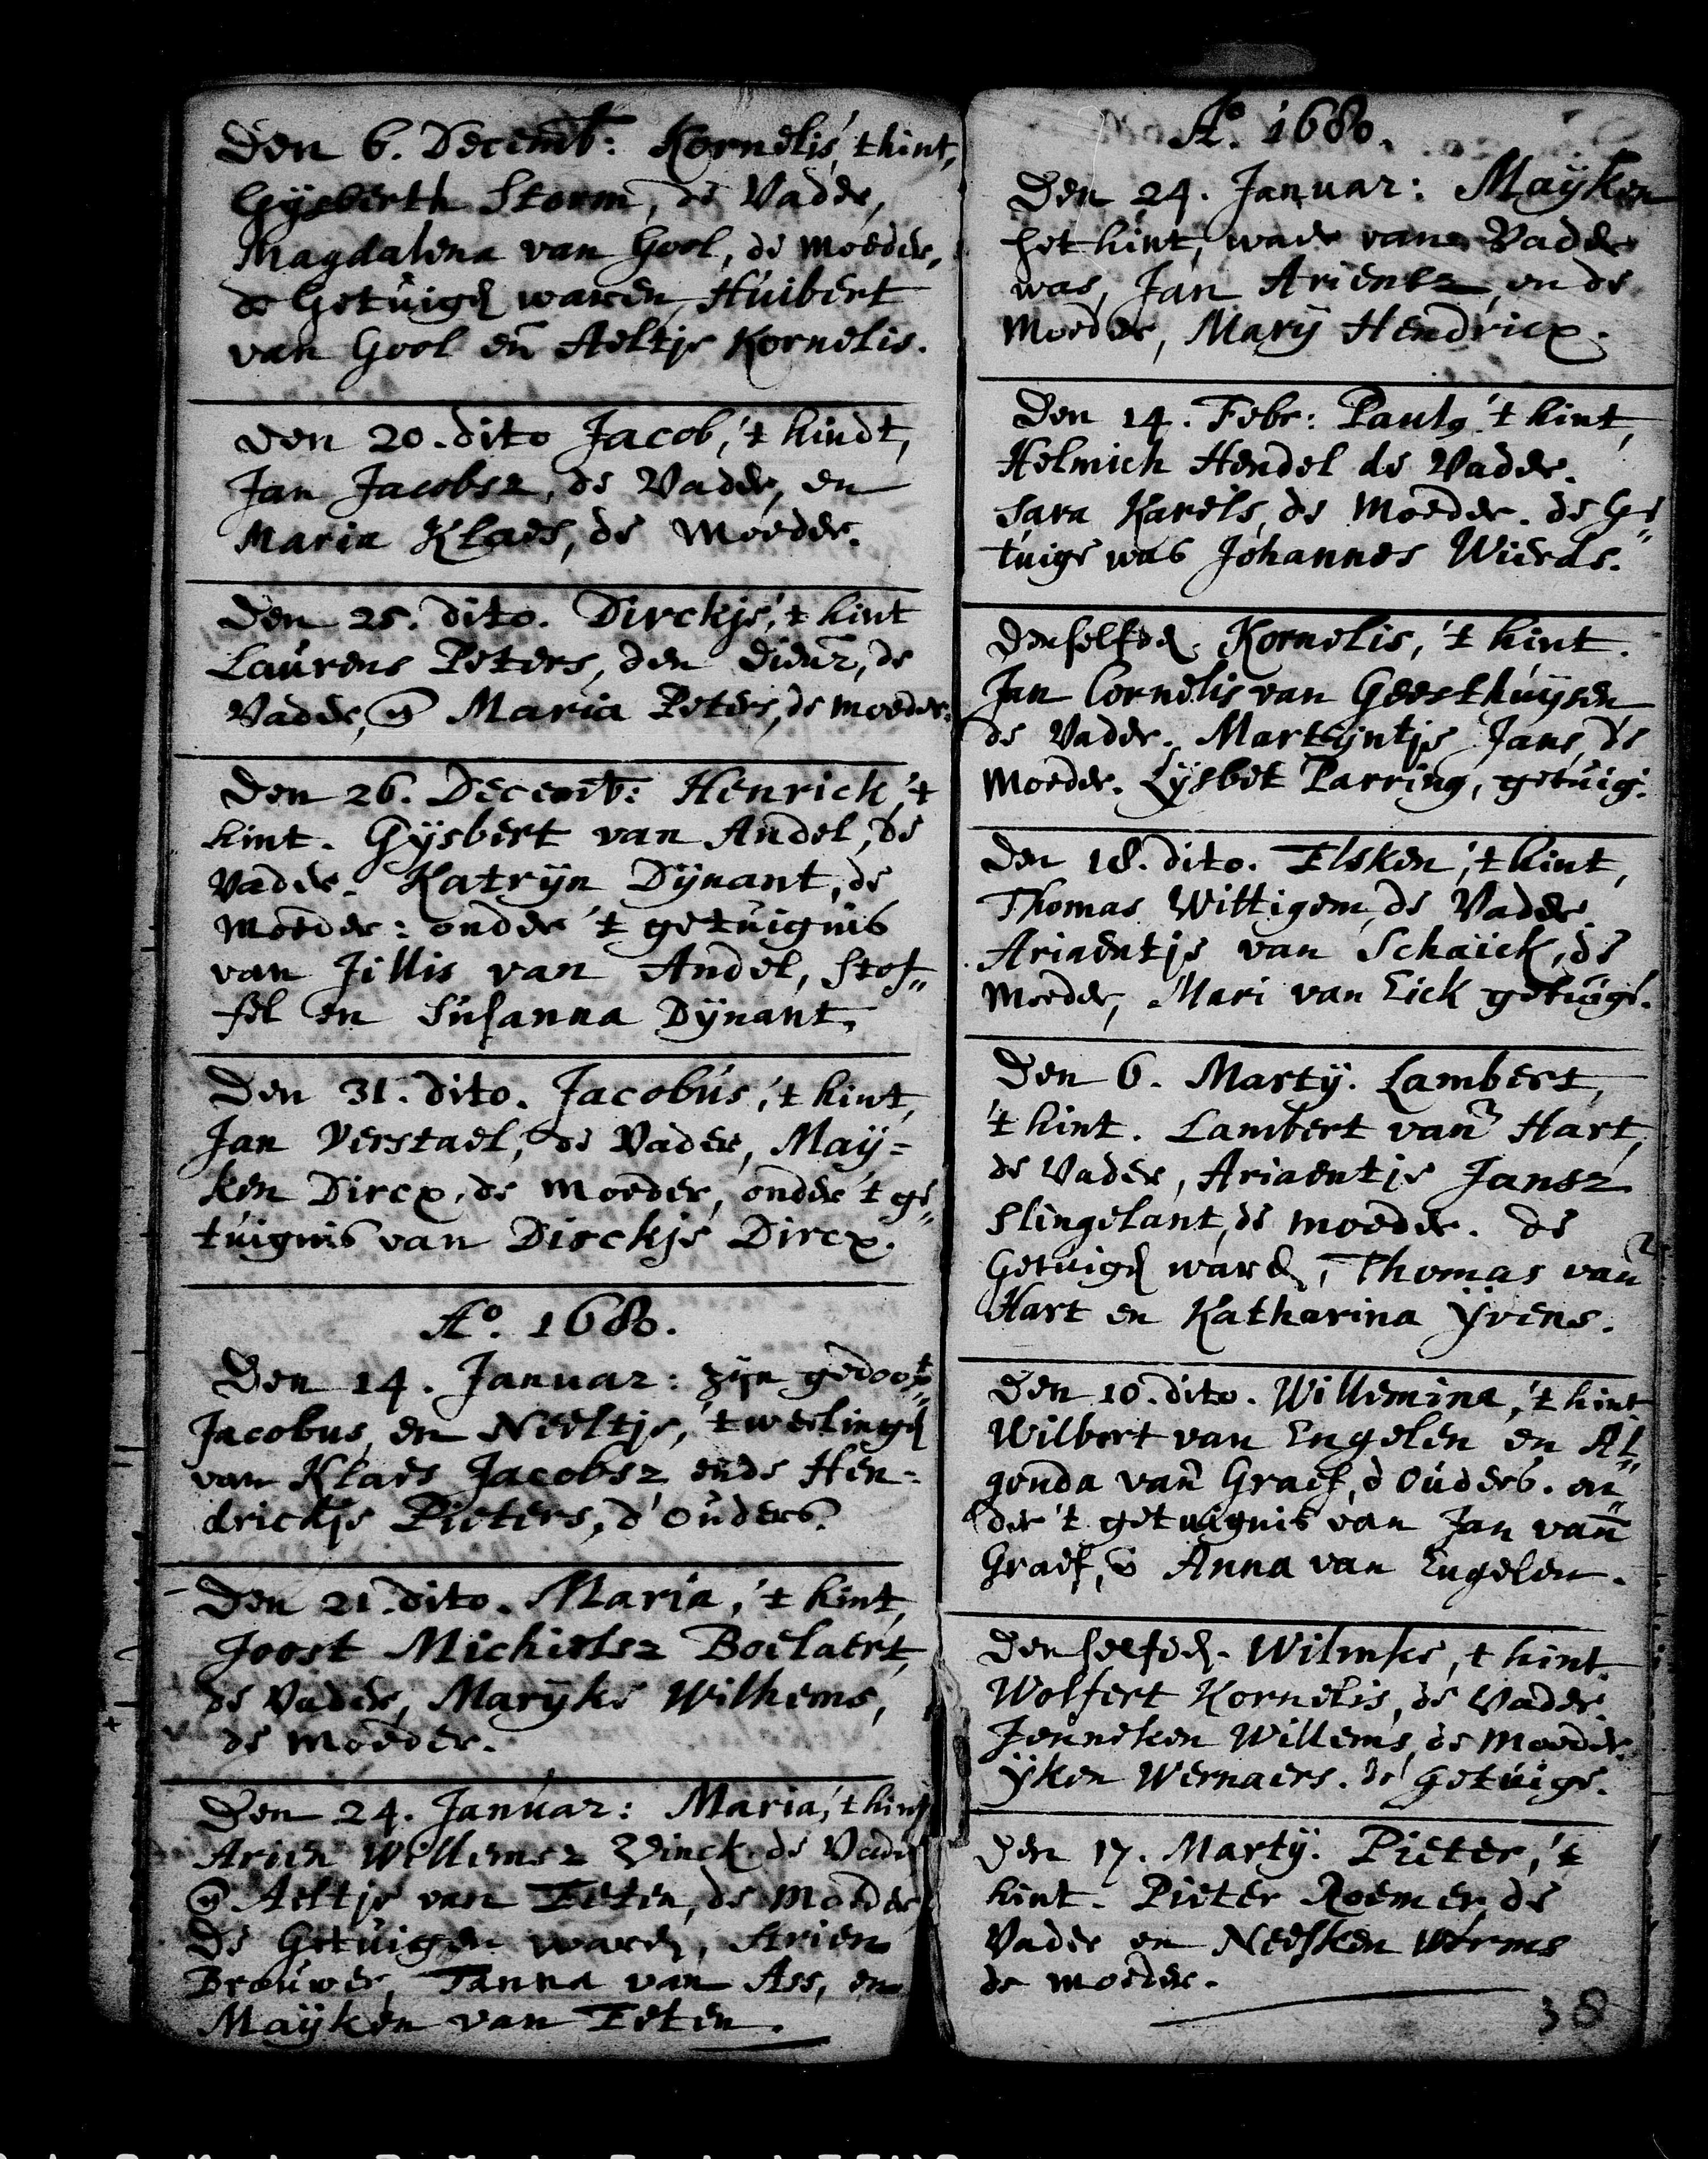 Den 6. Decemb: Kornelis, 't kint,
Gijsberth Storm, de Vader,
Magdalena van Gool, de moeder,
de Getuigen waren, Huibert
van Gool en Aeltje Kornelis.
Den 20. dito Jacob, 't kindt,
Jan Jacobsz, de Vader, en
Maria Klaes, de Moeder.
Den 25. dito. Dirckje, 't kint
Laurens Peters, den dienr, de
Vader, en Maria Peters, de moeder.
Den 26. Decemb: Henrick, 't
kint. Gijsbert van Andel, de
Vader. Katrijn Dijnant, de
Moeder: onder 't getuignis
van Jillis van Andel, Stof„
fel en Susanna Dijnant,
Den 31. dito. Jacobus, 't kint,
Jan Verstael, de Vader, Maij=
ken Dircx, de Moeder, onder 't ge„
tuignis van Dirckje Dircx.
Ao. 1680.
Den 14. Januar: zijn gedoopt
Jacobus, en Neeltje, 't weelingen
van Klaes Jacobsz ende Hen=
drickje Pieters, d'ouders.
Den 21. dito. Maria, 't kint,
Joost Michielsz Boelaert,
de Vader, Marijke Wilhems,
de Moeder.
Den 24. Januar: Maria, 't kint
Arien Willemsz Vinck de Vader
en Aeltje van Eeten, de Moeder
De Getuigen waren, Arien
Brouwer, Janna van Ass, en
Maijken van Eeten.
Ao. 1680.
Den 24. Januar: Maijken
het kint, waer van Vader
was, Jan Arientz, en de
Moeder, Marij Hendricx.
Den 14. Febr: Pauls 't kint,
Helmich Hendel de Vader.
Sara Karels, de Moeder. de Ge„
tuige was Johannes Wierds.
Denselfden. Kornelis, 't kint.
Jan Cornelis van Geesthuijsen
de Vader. Martijntje Jans, de
Moeder. Lijsbet Parring, getuig.
Den 18. dito. Elsken, 't kint,
Thomas Wittigem, de Vader.
Ariaentje van Schaick, de
Moeder, Mari van Eick getuige.
Den 6. Martij. Lambert,
't kint. Lambert van Hart,
de Vader, Ariaentje Jansz
Slingelant, de moeder. de
Getuigen waren, Thomas van
Hart en Katharina Yvens.
Den 10. dito. Willemina, 't kint
Wilbert van Engelen en Al„
gonda van Graef, d'Ouders. on„
der 't getuignis van Jan van
Graef, en Anna van Engelen.
Denselfden. Wilmke, 't kint.
Wolfert Kornelis, de Vader.
Jenneken Willems, de Moeder.
Yken Wernaers. de Getuige.
Den 17. Martij. Pieter, 't
kint. Pieter Roemer, de
Vader en Neesken Worms
de moeder.
38